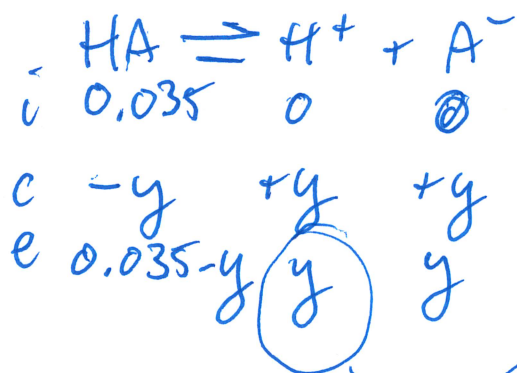 HA ⇌ H⁺ + A⁻
i 0.035 0 0
c -y +y +y
e 0.035-y y y